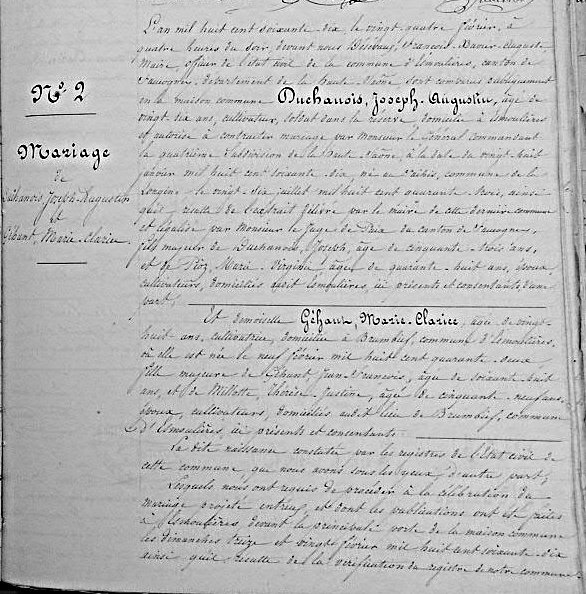 L'an mil huit cent soixante dix le vingt quatre février, à
quatre heures du soir, devant nous François Xavier Auguste
Maire officier de l'état civil de la commune d'Esmoulières, canton de
Faucogney, département de la haute Saône sont comparus publiquement
en la maison commune Duchanois, Joseph-Augustin, âgé de
vingt six ans, cultivateur, soldat dans la réserve, domicilié à Esmoulières
et autorisé à contracter mariage par Monsieur le Général commandant
la quatrième subdivision de la haute Saône, à la date du vingt huit
janvier mil huit cent soixante dix, né au commune de la
Longine le vingt six juillet mil huit cent quarante trois, ainsi
qu'il résulte de l'extrait délivré par le maire de cette dernière commune
et légalisé par Monsieur le juge de Paix du canton de Faucogney,
fils majeur de Duchanois, Joseph, âgé de cinquante trois ans,
et de Marie Virginie, âgée de quarante huit ans, époux,
cultivateurs, domiciliés audit Esmoulières, ici présents et consentants, d'une
part;
Nº 2
Mariage
de
Duchanois, Joseph Augustin
et
Géhant, Marie-Clarice
Et demoiselle Géhant, Marie-Clarice, âgée de vingt-
huit ans, cultivatrice, domiciliée à commune d'Esmoulières,
où elle est née le neuf février mil huit cent quarante deux
fille majeure de Géhant, Jean-François, âgé de soixante huit
ans, et de Millotte, Thérèse Justine, âgée de cinquante neuf ans,
époux, cultivateurs, domiciliés audit lieu de commune
d'Esmoulières, ici présents et consentants
La dite naissance constatée par les registres de l'état civil de
cette commune que nous avons sous les yeux, d'autre part;
Lesquels nous ont requis de procéder à la célébration du
mariage projeté entr'eux, et dont les publications ont été faites
à Esmoulières, devant la principale porte de la maison commune
les dimanches treize et vingt février mil huit cent soixante dix
ainsi qu'il résulte de la vérification du registre de notre commune